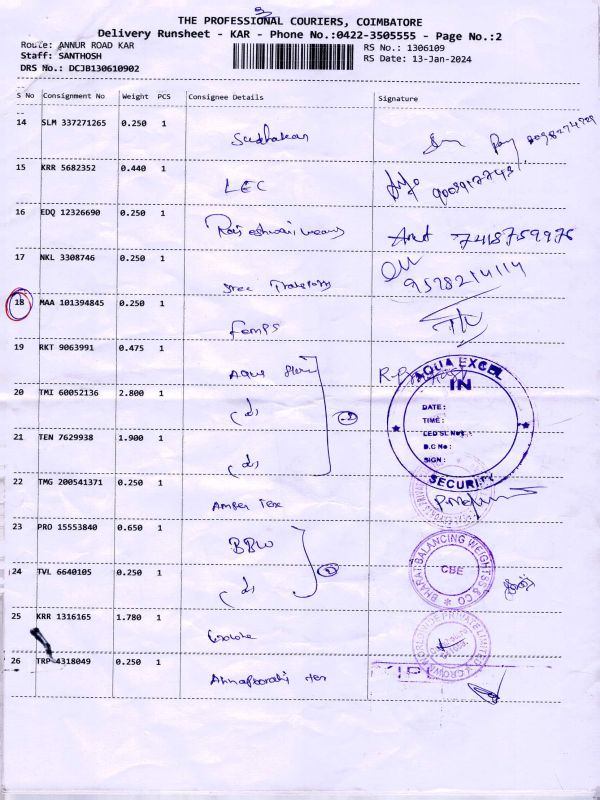 THE PROFESSIONAL COURIERS, COIMBATORE
Delivery Runsheet - KAR - Phone No.:0422-3505555 - Page No.:2
Route: ANNUR ROAD KAR
RS No.: 1306109
Staff: SANTHOSH
RS Date: 13-Jan-2024
DRS No.: DCJB130610902
S No Consignment No Weight PCS Consignee Details Signature
14 SLM 337271265 0.250 1 Sudhakar
15 KRR 5682352 0.440 1 LEC
16 EDQ 12326690 0.250 1 7418759976
17 NKL 3308746 0.250 1 Sree 9578214114
18 MAA 101394845 0.250 1
19 RKT 9063991 0.475 1 Aqua
20 TMI 60052136 2.800 1 (d)
21 TEN 7629938 1.900 1 (d)
22 TMG 200541371 0.250 1 Amber Tex
23 PRO 15553840 0.650 1 BBW
24 TVL 6640105 0.250 1 (d)
25 KRR 1316165 1.780 1
26 TRP 4318049 0.250 1 Annapoorani Tex
AQUA EXCEL
IN
DATE :
TIME :
LED SL NO. :
D.C No :
SIGN :
SECURITY
BHARAT BALANCING WEIGHTSS & CO
CBE